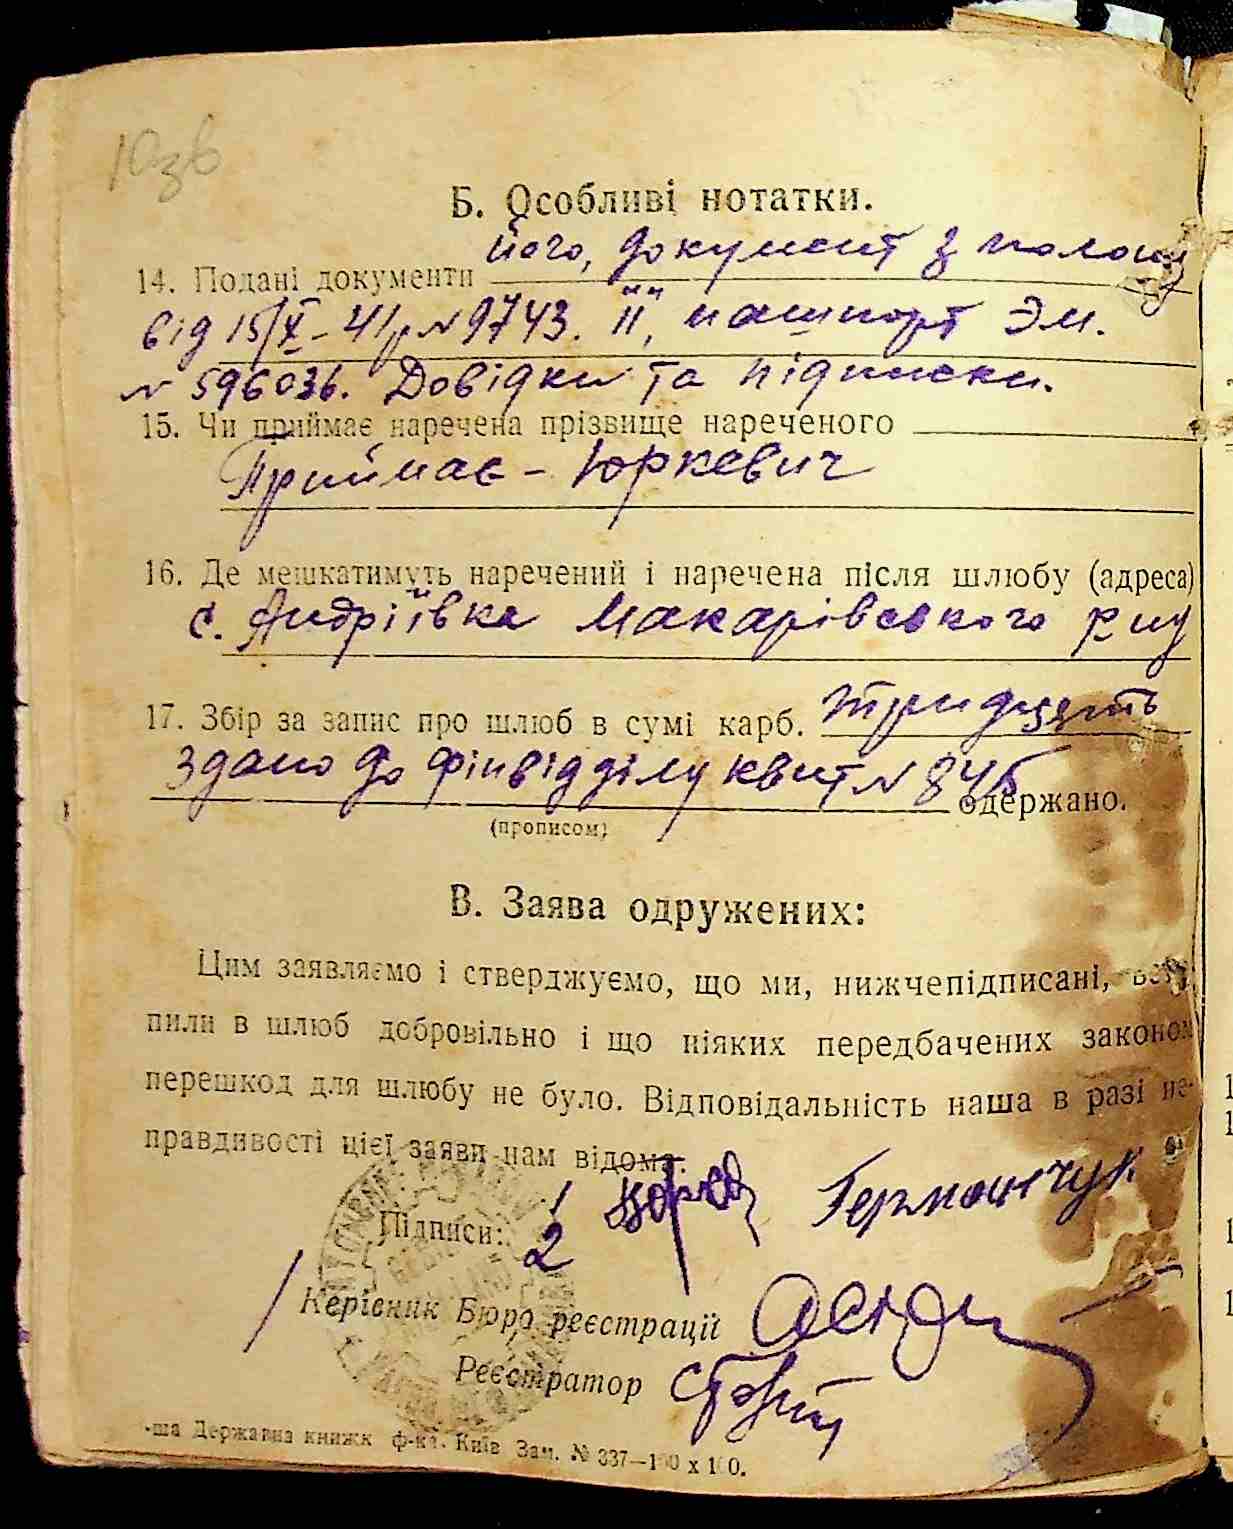 10зв
Б. Особливі нотатки.
14. Подані документи його, документ з полону
від 15/X-41р N 9743. Її, пашпорт ЭМ.
N 596036. Довідки та підписки.
15. Чи приймає наречена прізвище нареченого
Приймає - Юркевич
16. Де мешкатимуть наречений і наречена після шлюбу (адреса)
с. Андріївка Макарівського р-ну
17. Збір за запис про шлюб в сумі карб. тридцять
здано до фінвідділу квит N 846 одержано.
(прописом)
В. Заява одружених:
Цим заявляємо і стверджуємо, що ми, нижчепідписані, всту-
пили в шлюб добровільно і що ніяких передбачених законом
перешкод для шлюбу не було. Відповідальність наша в разі не-
правдивості цієї заяви нам відома.
Підписи: 1 2 Гермончук
Керівник Бюро реєстрації
Реєстратор
-ша Державна книжк. ф-ка. Київ Зам. № 337—100 х 100.